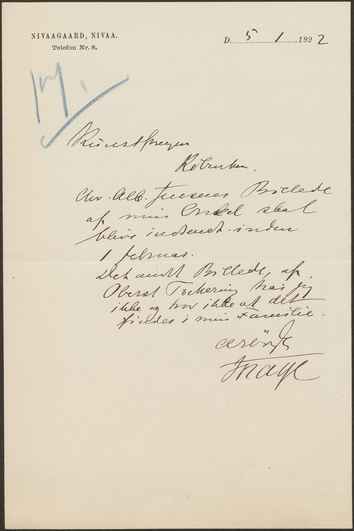 NIVAAGAARD, NIVAA.
Telefon Nr. 8.
D. 5/1 1922
Kunstforeningen
København.
Chr. Alb. Jensens Billede
af min Onkel skal
blive indsendt inden
1 Februar.
Det andt Billede, af
Oberst Tscherning har jeg
ikke og tror ikke at det
findes i min Familie.
ærbødigst
Hage